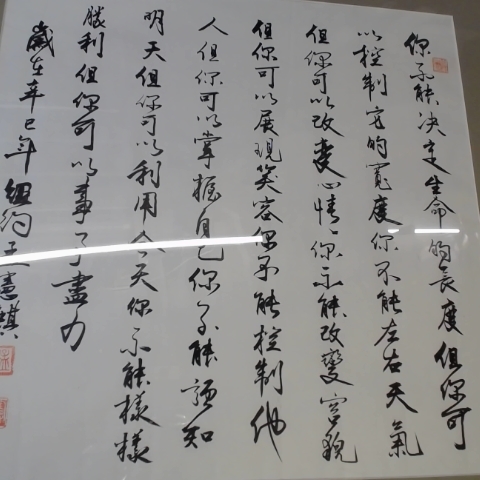 你不能决定生命的長度但你可
以控制它的寬度你不能左右天氣
但你可以改變心情、你不能改變容貌
但你可以展現笑容你不能控制他
人但你可以掌握自己你不能預知
明天但你可以利用今天你不能樣樣
勝利但你可以事々盡力
歲在辛巳年紐約王憲